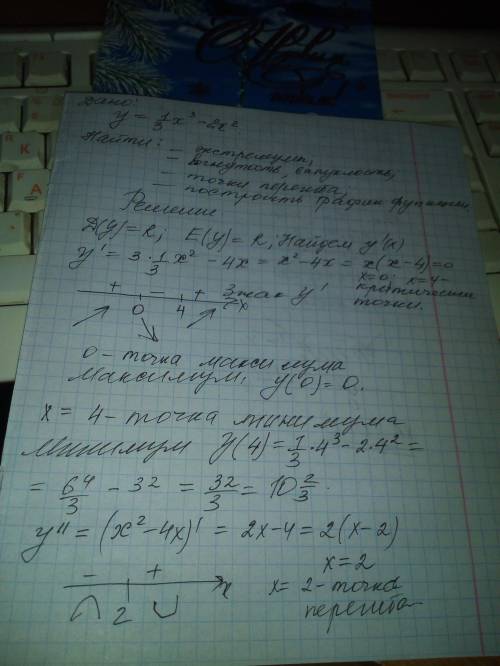 Дано:
y = 1/3 x³ - 2x²
Найти:
— экстремумы,
— вогнутость, выпуклость,
— точки перегиба,
— построить график функции.
Решение
D(y)=R; E(y)=R; Найдем y'(x)
y' = 3·1/3 x² - 4x = x² - 4x = x(x-4)=0
x=0; x=4-
критические
точки.
+ - + Знак y'
0 4 (x)
0 - точка максимума
Максимум: y(0)=0.
x = 4 - точка минимума
Минимум y(4)=1/3·4³-2·4²=
= 64/3 - 32 = 32/3 = 10 2/3.
y'' = (x²-4x)' = 2x-4=2(x-2)
x=2
- + x
2
x= 2-точка
перегиба